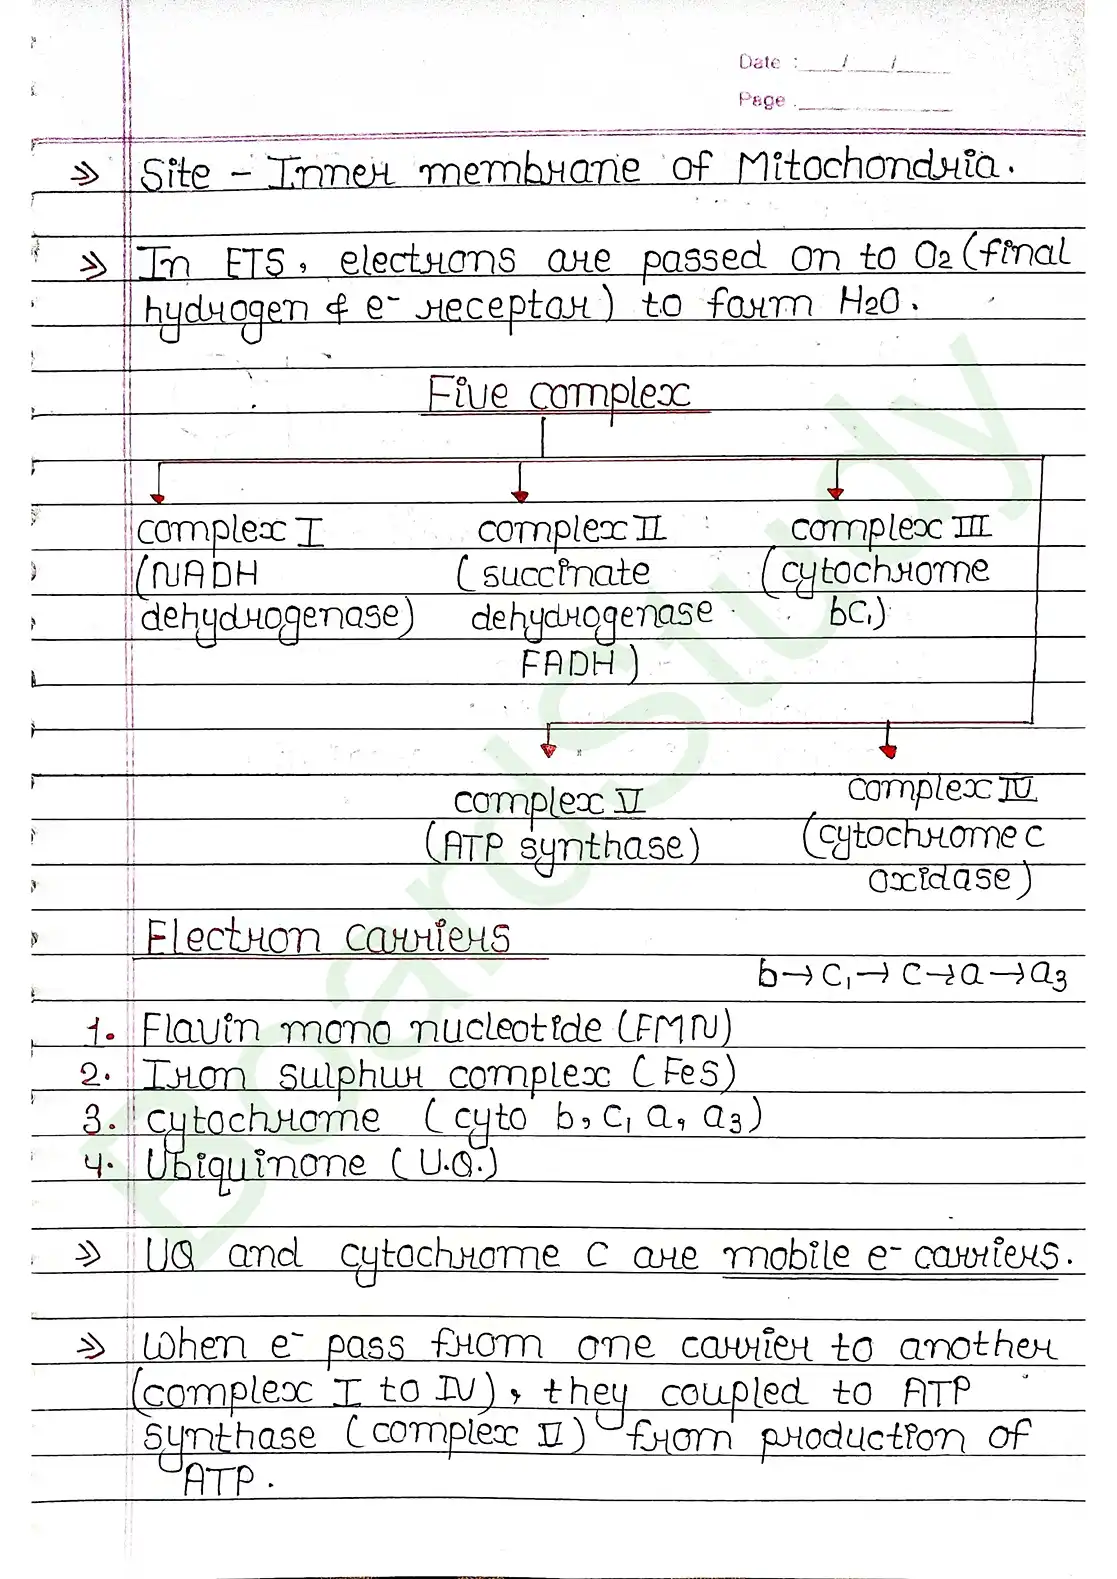 Date : / /
Page
» Site - Inner membrane of Mitochondria.
» In ETS, electrons are passed on to O2 (final
hydrogen & e- receptor) to form H2O.
Five complex
complex I
(NADH
dehydrogenase)
complex II
(succinate
dehydrogenase
FADH)
complex III
(cytochrome
bC1)
complex V
(ATP synthase)
complex IV
(cytochrome c
oxidase)
Electron carriers
b→C1→C→a→a3
1. Flavin mono nucleotide (FMN)
2. Iron sulphur complex (FeS)
3. cytochrome (cyto b, C1 a, a3)
4. Ubiquinone (U.Q.)
» UQ and cytochrome C are mobile e- carriers.
» When e- pass from one carrier to another
(complex I to IV), they coupled to ATP
synthase (complex V) from production of
ATP.
BoardStudy